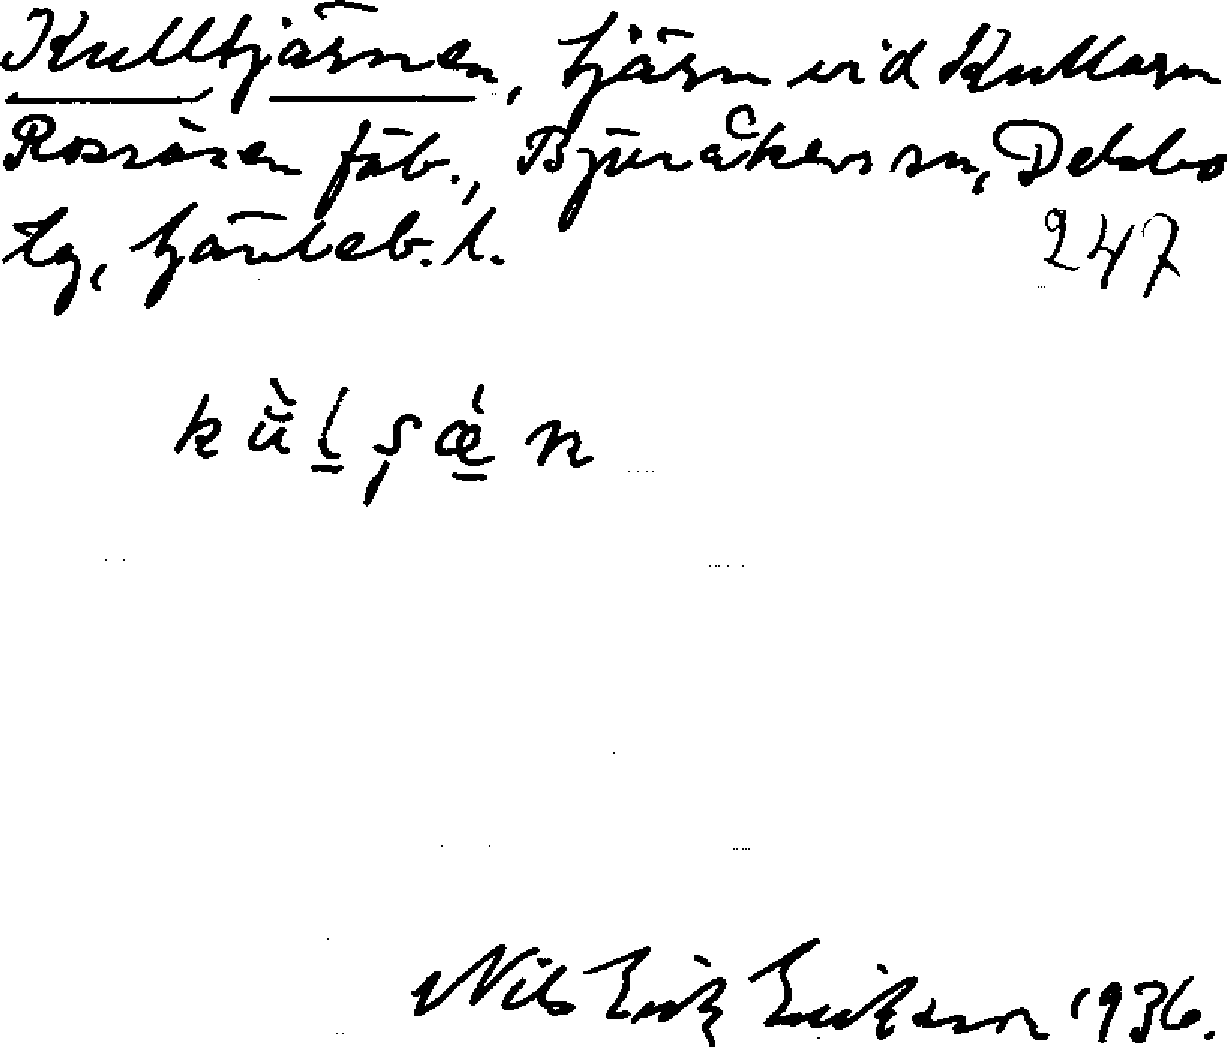 Kulltjärnen, tjärn vid Kullarn
Rossåsen fäb., Bjuråkers sn, Delsbo
tg, Gävleb. l. 247
kùl̠şǽn
Nils Erik Eriksson 1936.